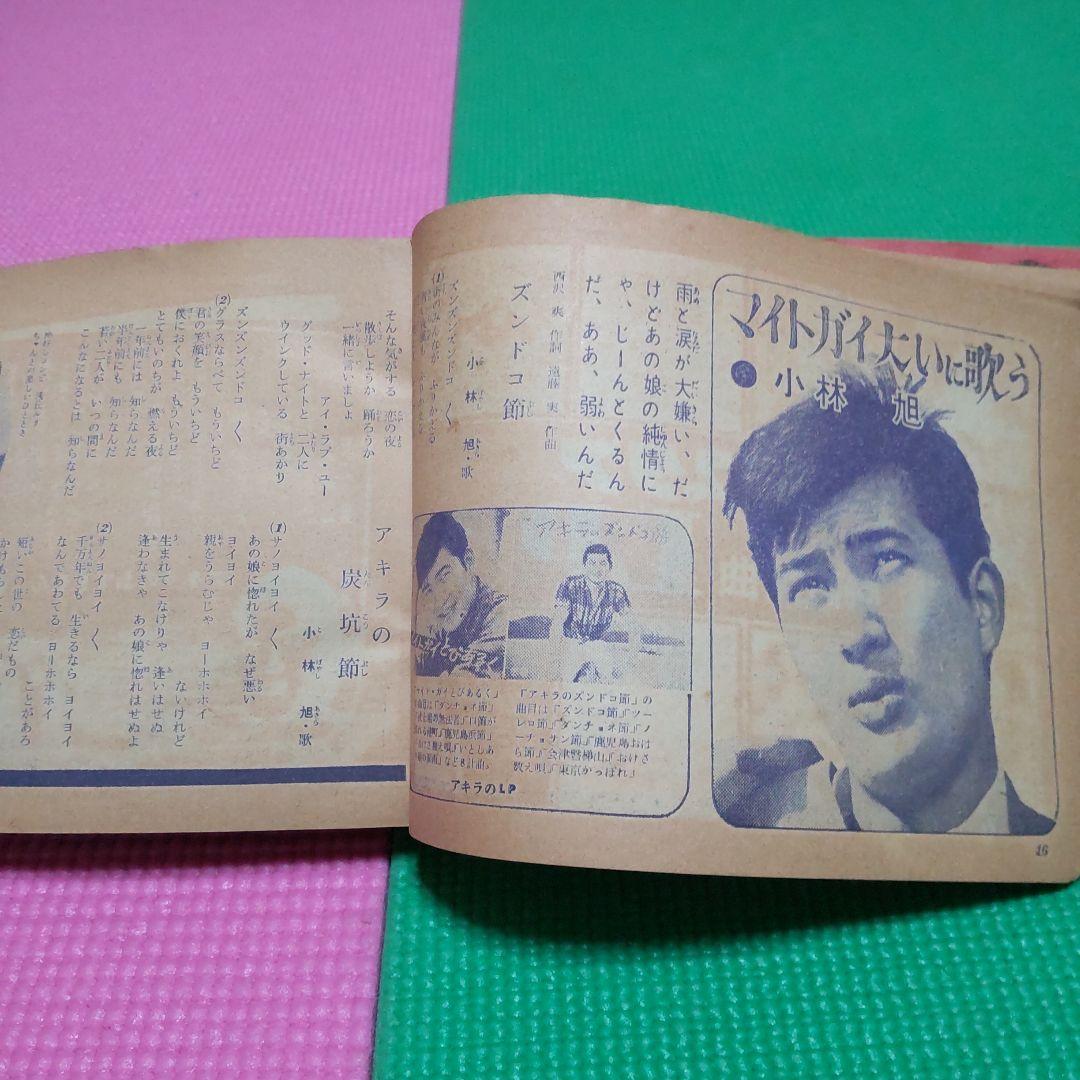 マイトガイ大いに歌う
小林 旭
雨と涙が大嫌い、だ
けどあの娘の純情に
ゃ、じーんとくるん
だ、ああ、弱いんだ
西沢 爽 作詞 遠藤 実 作曲
ズンドコ節
小林 旭・歌
(1)ズンズンズンドコ
アキラのズンドコ節
マイトガイとびあるく
『アキラのズンドコ節』の
曲目は『ズンドコ節』『ツー
レロ節』『ダンチョネ節』『ノ
ーチョサン節』『鹿児島おは
ら節』『会津磐梯山』『おけさ
数え唄』『東京かっぽれ』
アキラのLP
46
そんな気がする 恋の夜
散歩しようか 踊ろうか
一緒に言いましよ
アイ・ラブ・ユー
グッド・ナイトと 二人に
ウインクしている 街あかり
ズンズンズンドコ
(2)グラスならべて もういちど
君の笑顔を もういちど
僕におくれよ もういちど
とてもいのちが 燃える夜
一年前には 知らなんだ
半年前にも 知らなんだ
若い二人が いつの間に
こんなになるとは 知らなんだ
アキラの
炭坑節
小林 旭・歌
(1)サノヨイヨイ
あの娘に惚れたが なぜ悪い
ヨイヨイ
親をうらむじゃ ヨーホホホイ
ないけれど
生まれてこなけりゃ 逢いはせぬ
逢わなきゃ あの娘に惚れはせぬよ
(2)サノヨイヨイ
千万年でも 生きるなら ヨイヨイ
なんであわてる ヨーホホホイ
ことがあろ
短いこの世の 恋だもの